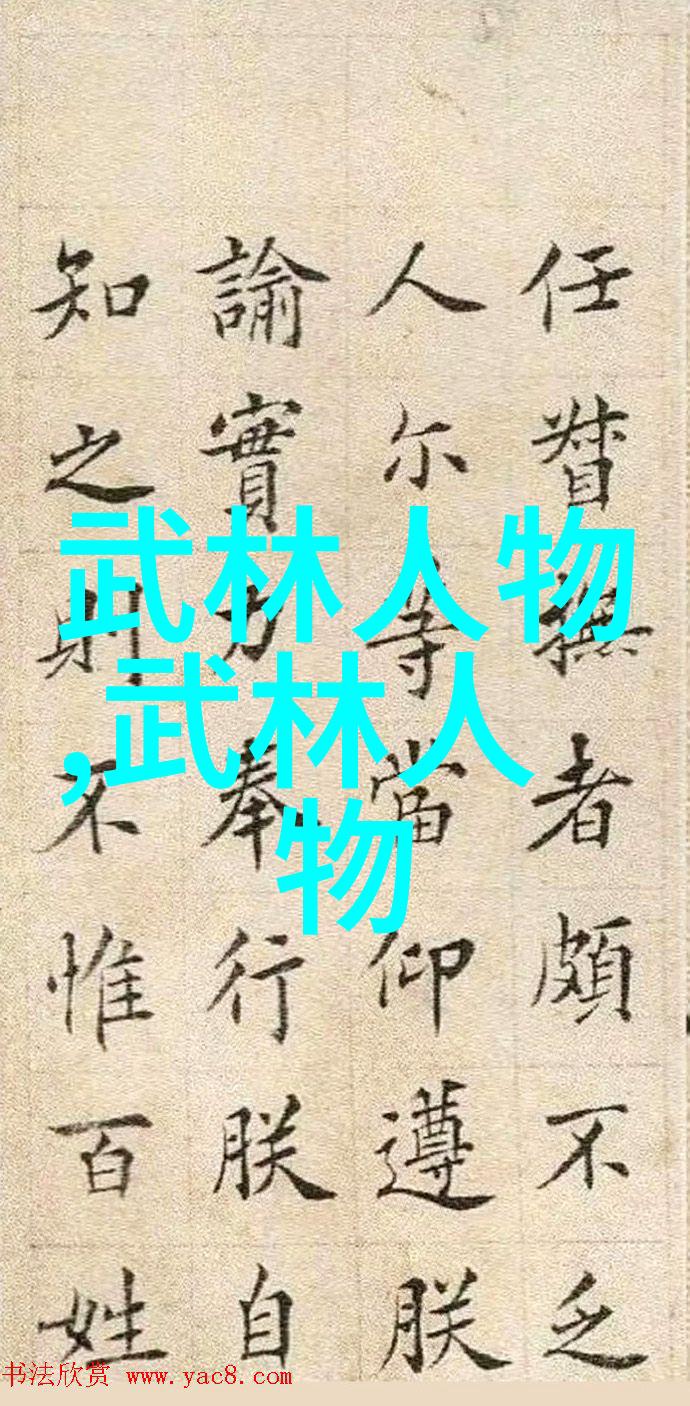 任督撫者頗不乏
人尔等當仰遵朕
諭實力奉行朕自
知之則不惟百姓
武林人物
,武林人
物
书法欣赏 www.yac8.com